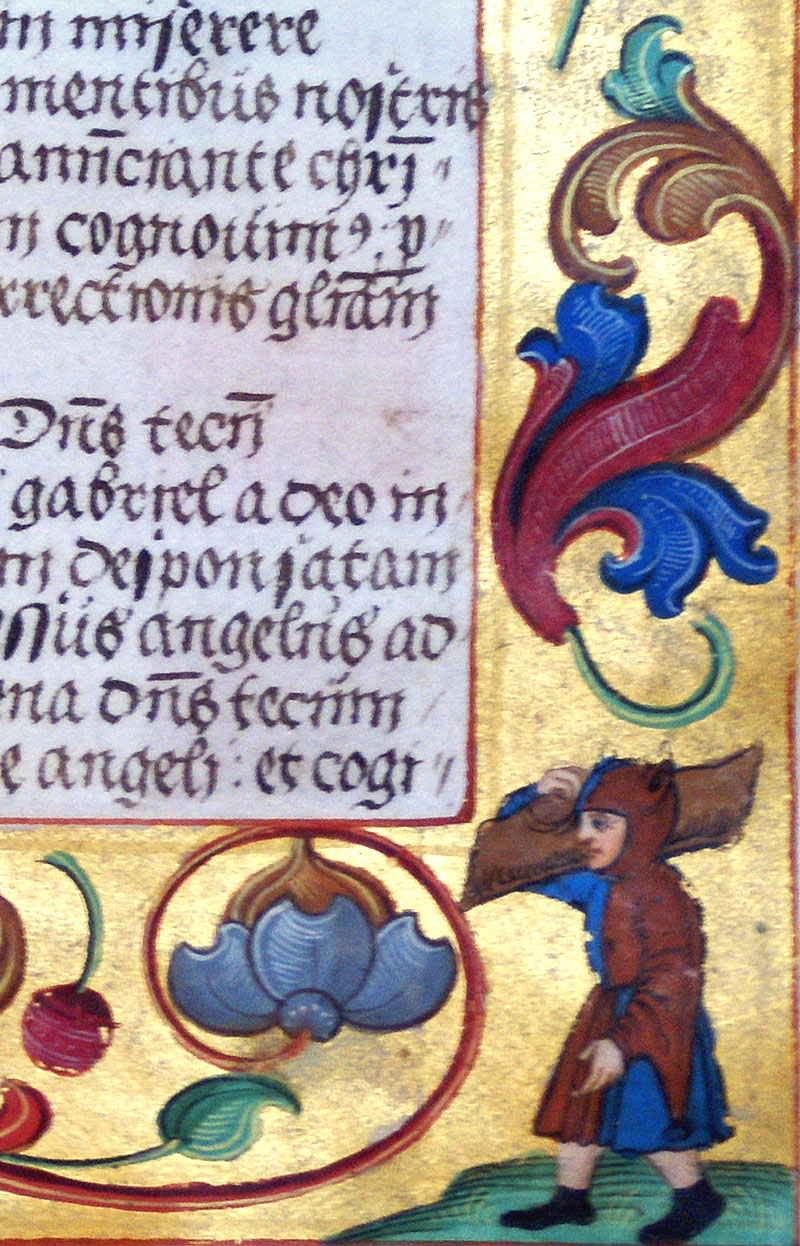 miserere
mentibus nostris
annũciante chrĩ
cognouimꝰ: p
rrectionis gl̃iam
Dñs tecũ
gabriel a deo in
desponsatam
ssus angelus ad
ena dñs tecum
e angeli : et cogi